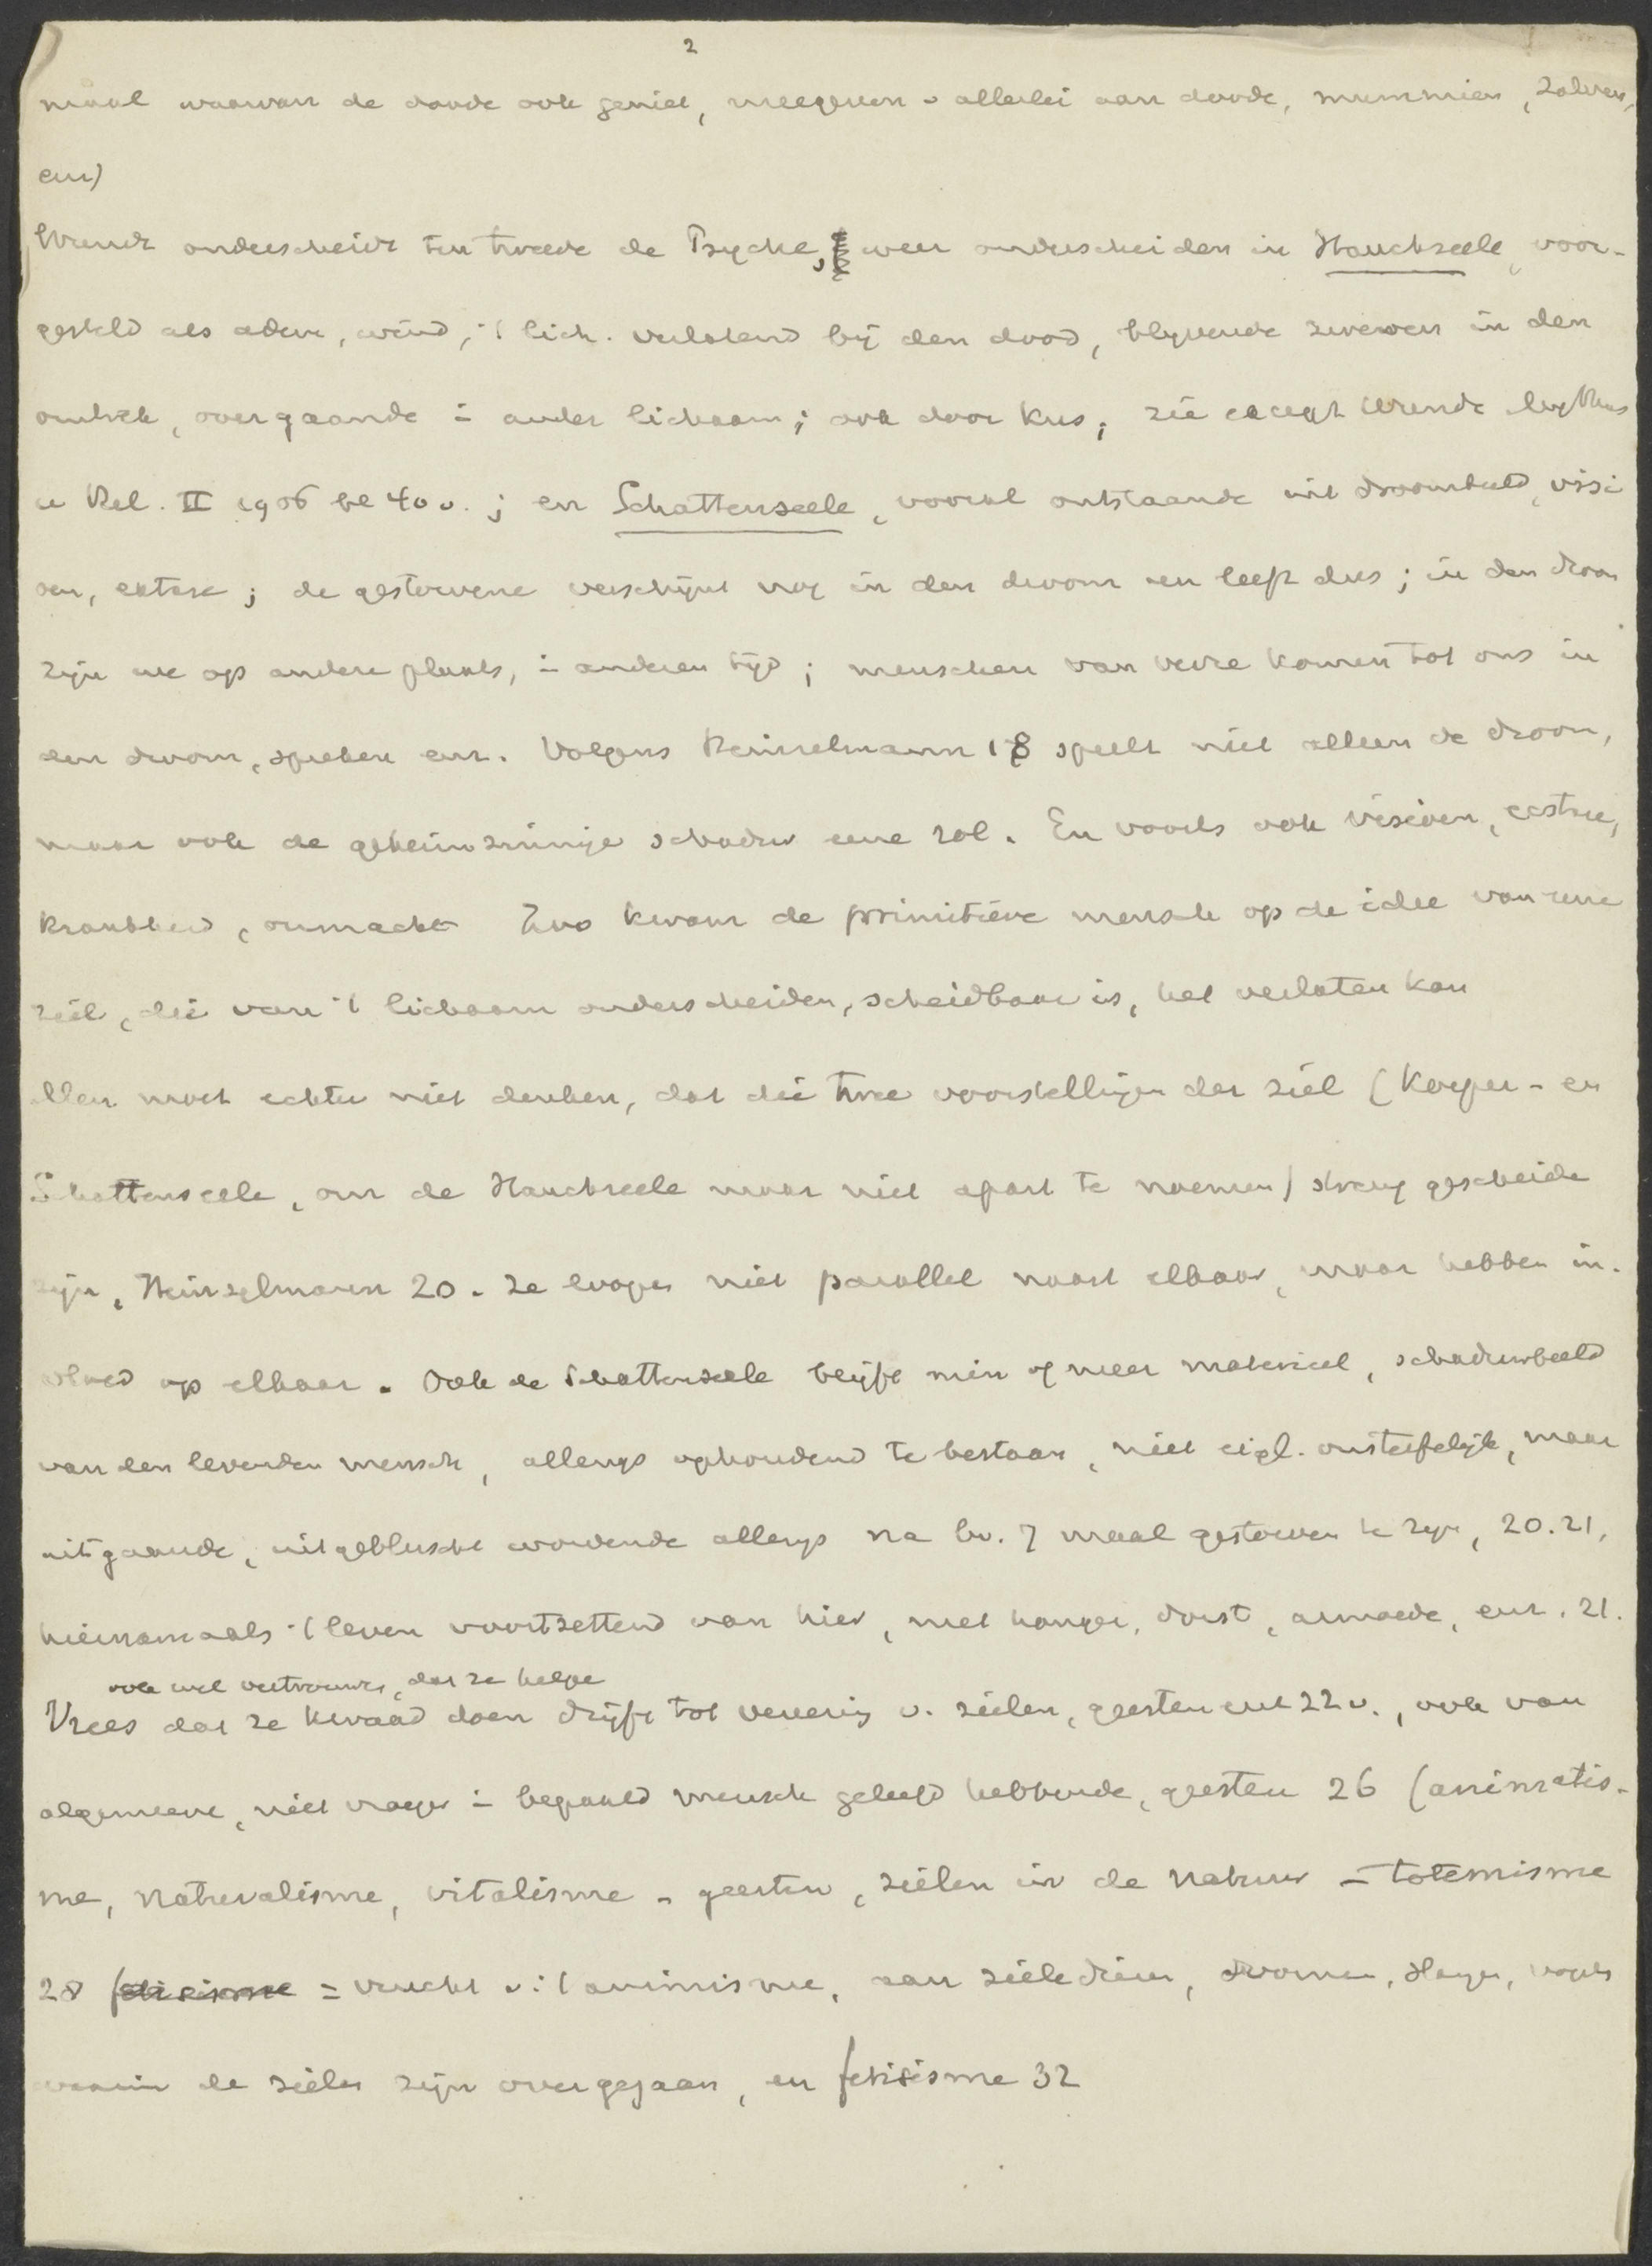 2
maal waarvan de doode ook geniet, meegeven v allerlei aan doode, mummien, zalven,
enz)
Wundt onderscheidt ten tweede de Psyche, weer onderscheiden in Hauchseele, voor-
gesteld als adem, wind, 't lich. verlatend bij den dood, blijvende zweven in den
omtrek, overgaande i ander lichaam; ook door kus; zie Wundt Mythus
u Rel. II 1906 bl 40 v.; en Schattenseele, vooral ontstaande uit droombeeld, visi
oen, extase; de gestorvene verschijnt nog in den droom en leeft dus; in den droom
zijn we op andere plaats, i anderen tijd; menschen van verre komen tot ons in
den droom, spreken enz. Volgens Heinzelmann 18 speelt niet alleen de droom,
maar ook de geheimzinnige schaduw eene rol. En voorts ook visioen, ecstase,
krankheid, onmacht Zoo kwam de primitieve mensch op de idee van eene
ziel, die van 't lichaam onderscheiden, scheidbaar is, het verlaten kan
Men moet echter niet denken, dat die twee voorstellingen der ziel (Körper- en
Schattenseele, om de Hauchseele maar niet apart te noemen) streng gescheiden
zijn, Heinzelmann 20. Ze loopen niet parallel naast elkaar, maar hebben in-
vloed op elkaar. Ook de Schattenseele blijft min of meer materieel, schaduwbeeld
van den levenden mensch, allengs ophoudend te bestaan, niet eigl. onsterfelijk, maar
uitgaande, uitgebluscht wordende allengs na bv. 7 maal gestorven te zijn, 20.21,
hiernamaals 't leven voortzettend van hier, met honger, dorst, armoede, enz. 21.
ook wel vertrouwen, dat ze helpen
Vrees dat ze kwaad doen drijft tot vereering v. zielen, geesten enz 22 v., ook van
algemeene, niet vroeger i bepaald mensch geleefd hebbende, geesten 26 (animatis-
me, naturalisme, vitalisme - geesten, zielen in de natuur - totemisme
28 fetisisme = vrucht v 't animisme, aan zieledieren, vormen, slangen, vogels
waarin de zielen zijn overgegaan, en fetisisme 32